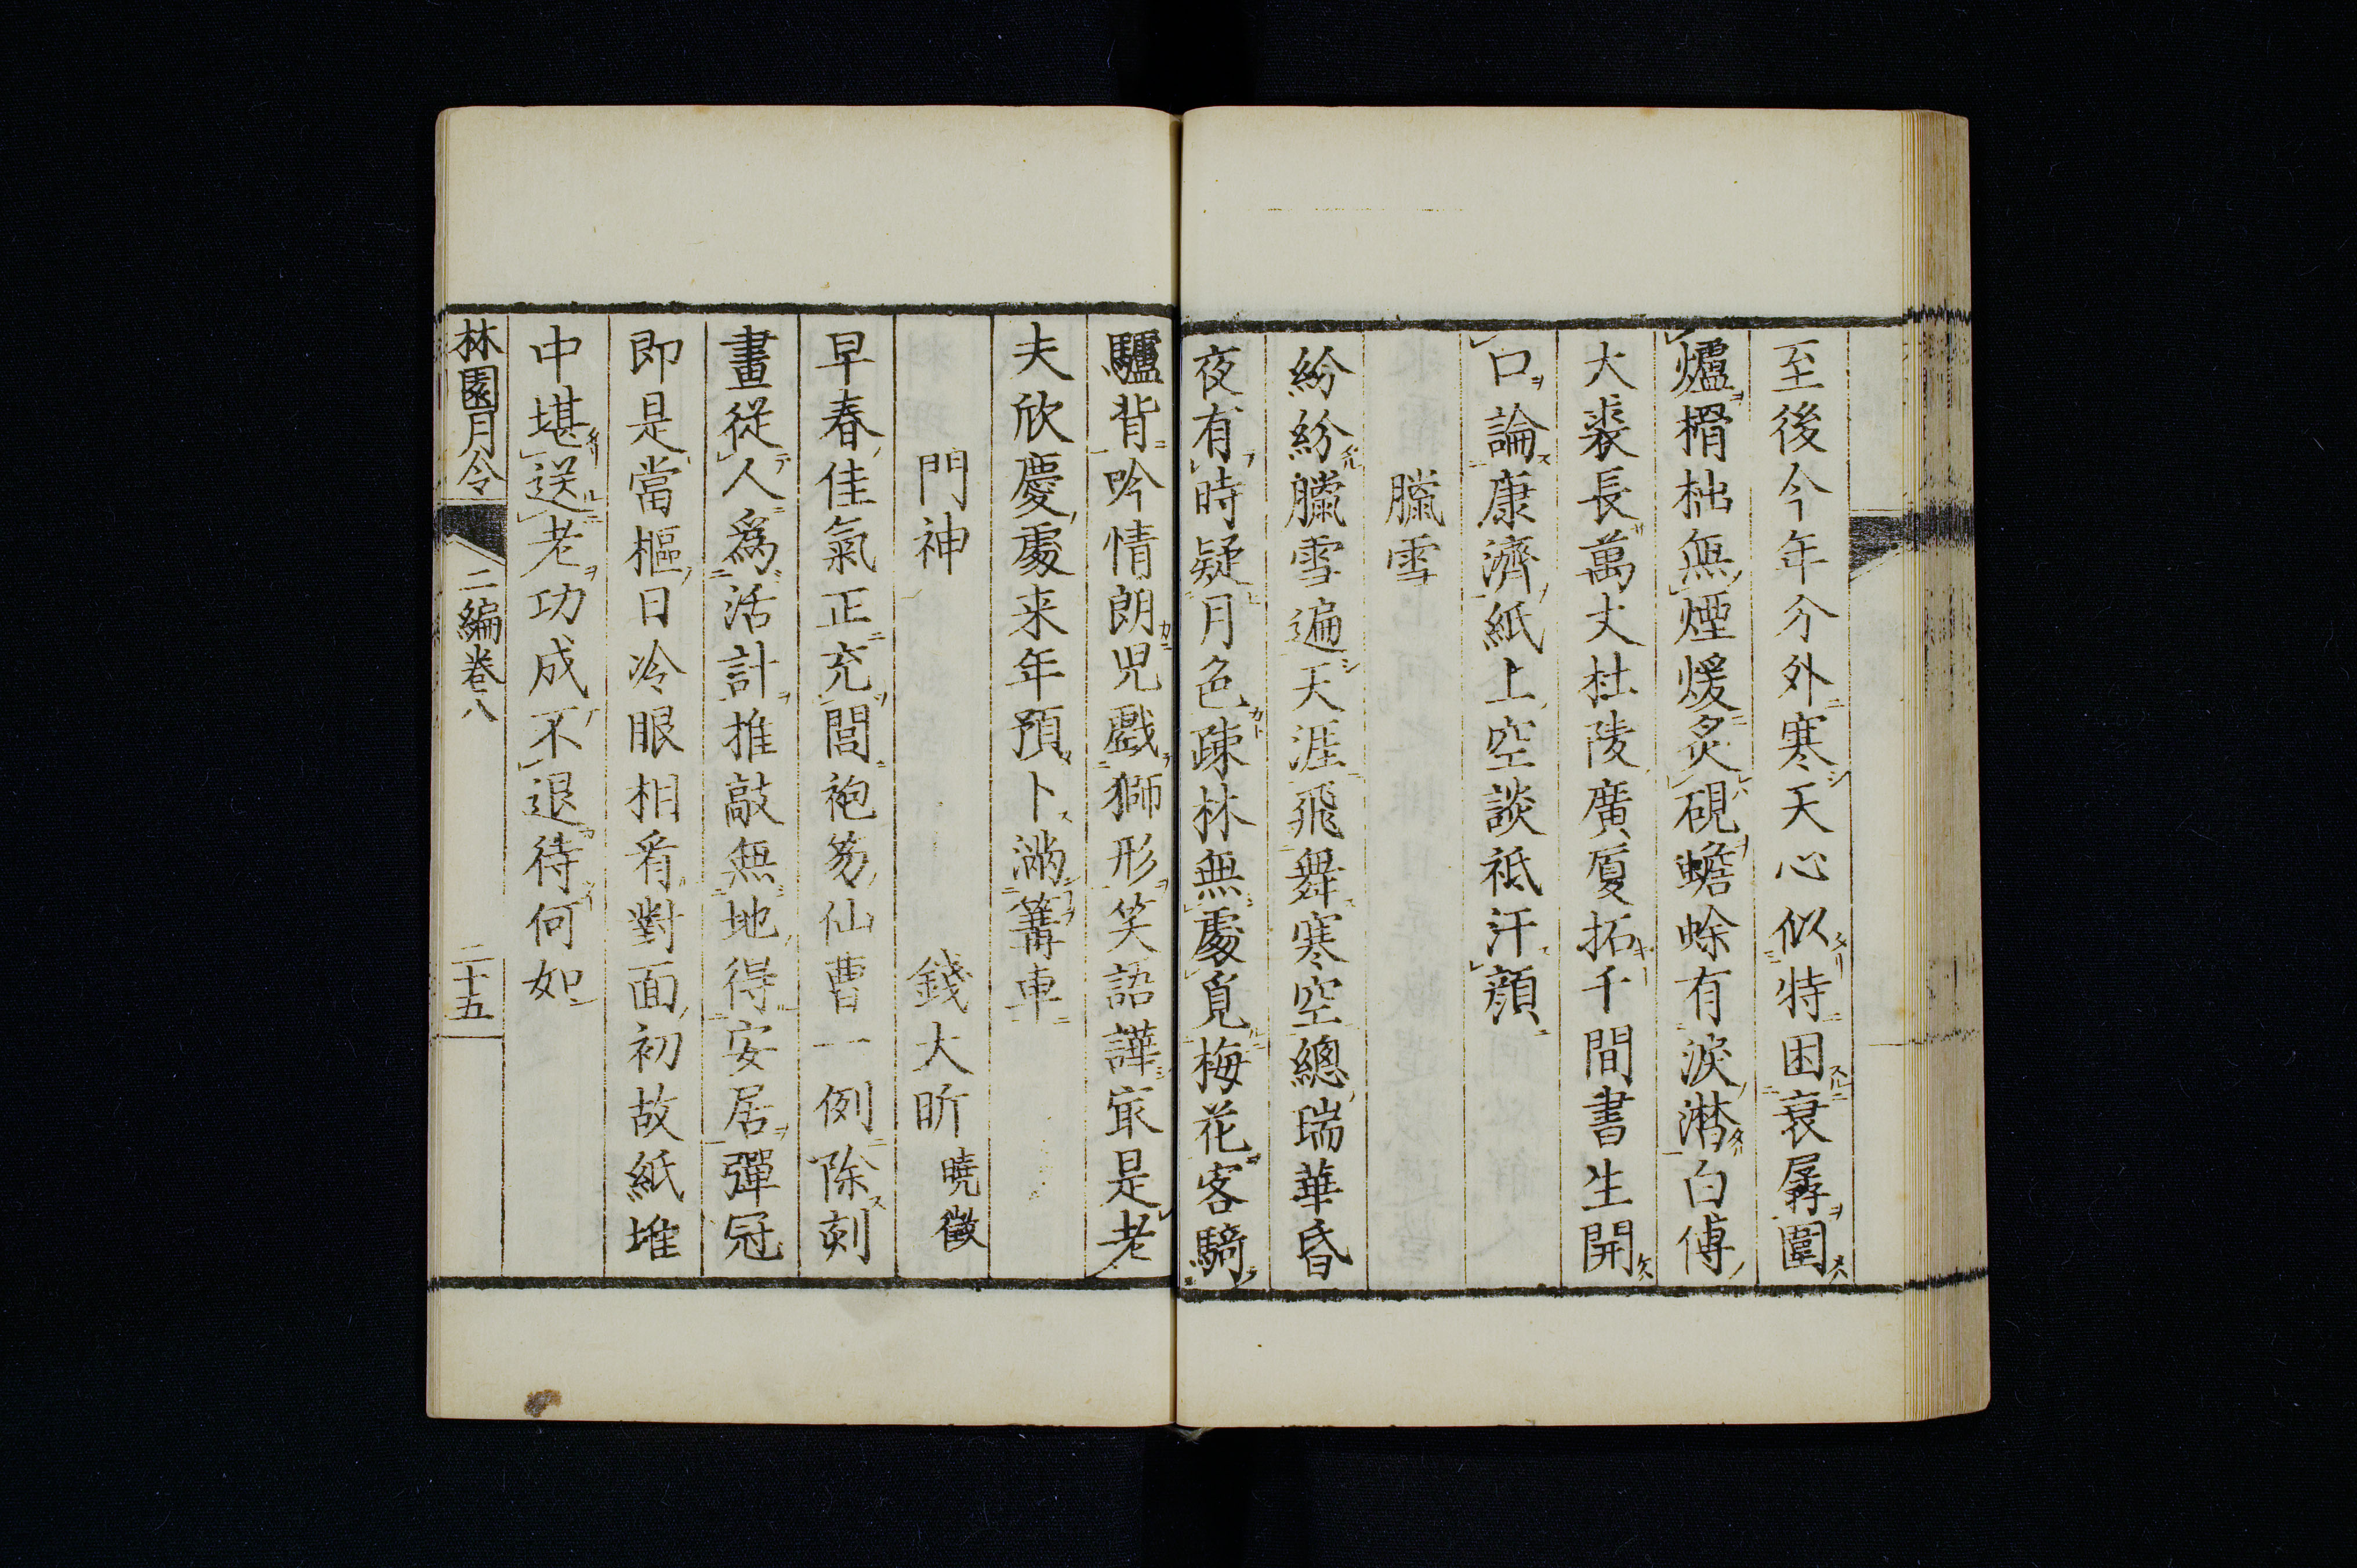 至後今年分外寒天心似特困衰孱圍
爐榾柮無煙煖炙硯蟾蜍有淚潸白傅
大裘長萬丈杜陵廣厦拓千間書生開
口論康濟紙上空談祗汗顔
臘雪
紛紛臘雪遍天涯飛舞寒空總瑞華昏
夜有時疑月色疎林無處覓梅花客騎
驢背吟情朗兒戲獅形笑語譁㝡是老
夫欣慶處来年預卜滿篝車
門神　錢大昕曉徵
早春佳氣正充閭袍笏仙曹一例除刻
畫從人爲活計推敲無地得安居彈冠
即是當樞日冷眼相看對面初故紙堆
中堪送老功成不退待何如
林園月令　二編卷八　二十五